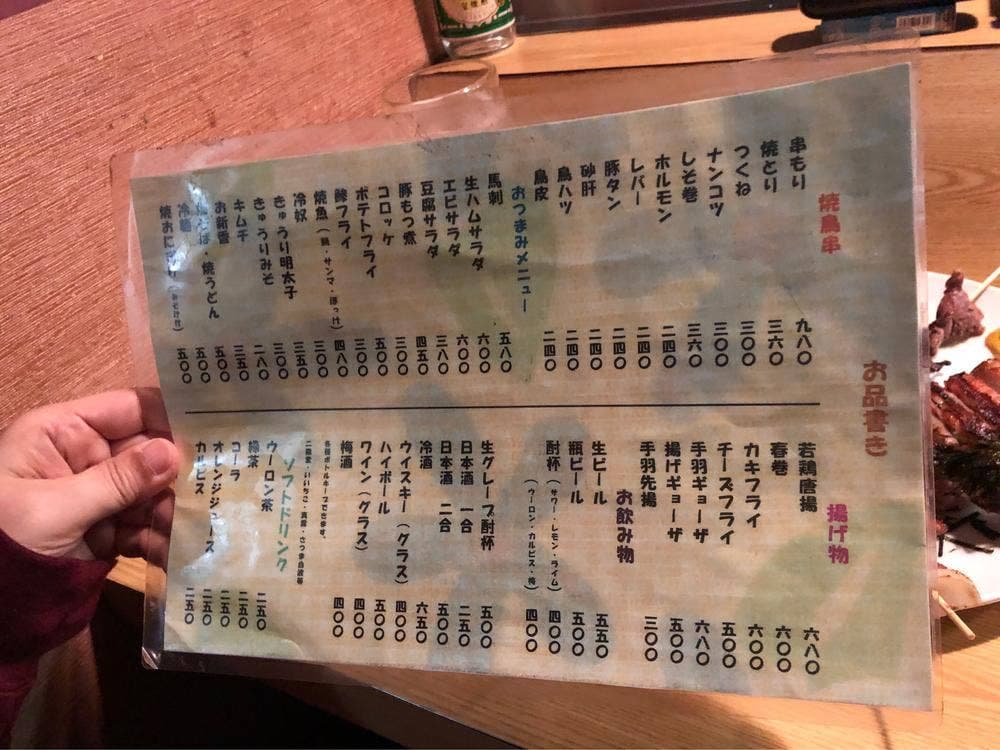 お品書き
焼鳥串
串もり 九八〇
焼とり 三六〇
つくね 三〇〇
ナンコツ 三〇〇
しそ巻 三六〇
ホルモン 二四〇
レバー 二四〇
豚タン 二四〇
砂肝 二四〇
鳥ハツ 二四〇
鳥皮 二四〇
おつまみメニュー
馬刺 五八〇
生ハムサラダ 六〇〇
エビサラダ 六〇〇
豆腐サラダ 三八〇
豚もつ煮 四五〇
コロッケ 三〇〇
ポテトフライ 五〇〇
鯵フライ 三〇〇
焼魚（鯖・サンマ・ほっけ） 四八〇
冷奴 三〇〇
きゅうり明太子 三五〇
きゅうりみそ 三〇〇
キムチ 二八〇
お新香 三五〇
焼そば・焼うどん 五〇〇
冷麺 五〇〇
焼おにぎり（みそ汁付） 五〇〇
揚げ物
若鶏唐揚 六八〇
春巻 六〇〇
カキフライ 六〇〇
チーズフライ 五〇〇
手羽ギョーザ 六八〇
揚げギョーザ 五〇〇
手羽先揚 三〇〇
お飲み物
生ビール 五五〇
瓶ビール 五〇〇
酎杯（サワー・レモン・ライム） 四〇〇
（ウーロン・カルピス・梅） 四〇〇
生グレープ酎杯 五〇〇
日本酒 一合 二五〇
日本酒 二合 五〇〇
冷酒 六五〇
ウイスキー（グラス） 四〇〇
ハイボール 五〇〇
ワイン（グラス） 四〇〇
梅酒 四〇〇
各種ボトルキープできます。
二階堂・いいちこ・真露・さつま白波等
ソフトドリンク
ウーロン茶 二五〇
緑茶 二五〇
コーラ 二五〇
オレンジジュース 二五〇
カルピス 二五〇